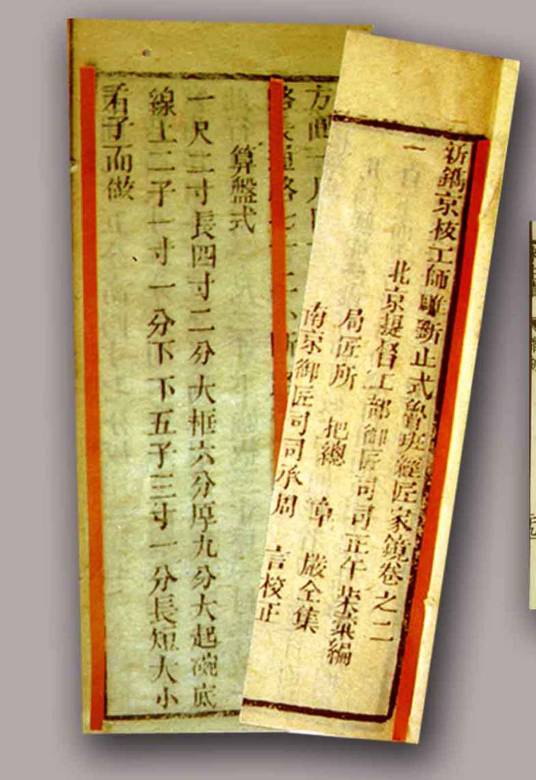 新鐫京板工師雕斲正式魯班經匠家鏡卷之二
北京提督工部御匠司司正午榮彙編
局匠所 把總 章 嚴全集
南京御匠司司承周 言校正
算盤式
一尺二寸長四寸二分大框六分厚九分大起碗底
線上二子一寸一分下下五子三寸一分長短大小
看子而做